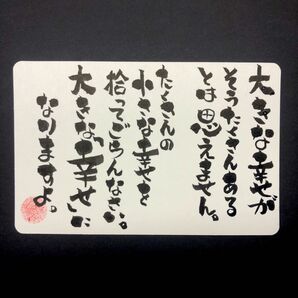 大きな幸せが
そうたくさんある
とは思えません。
たくさんの
小さな幸せを
拾ってごらんなさい。
大きな「幸せ」に
なりますよ。